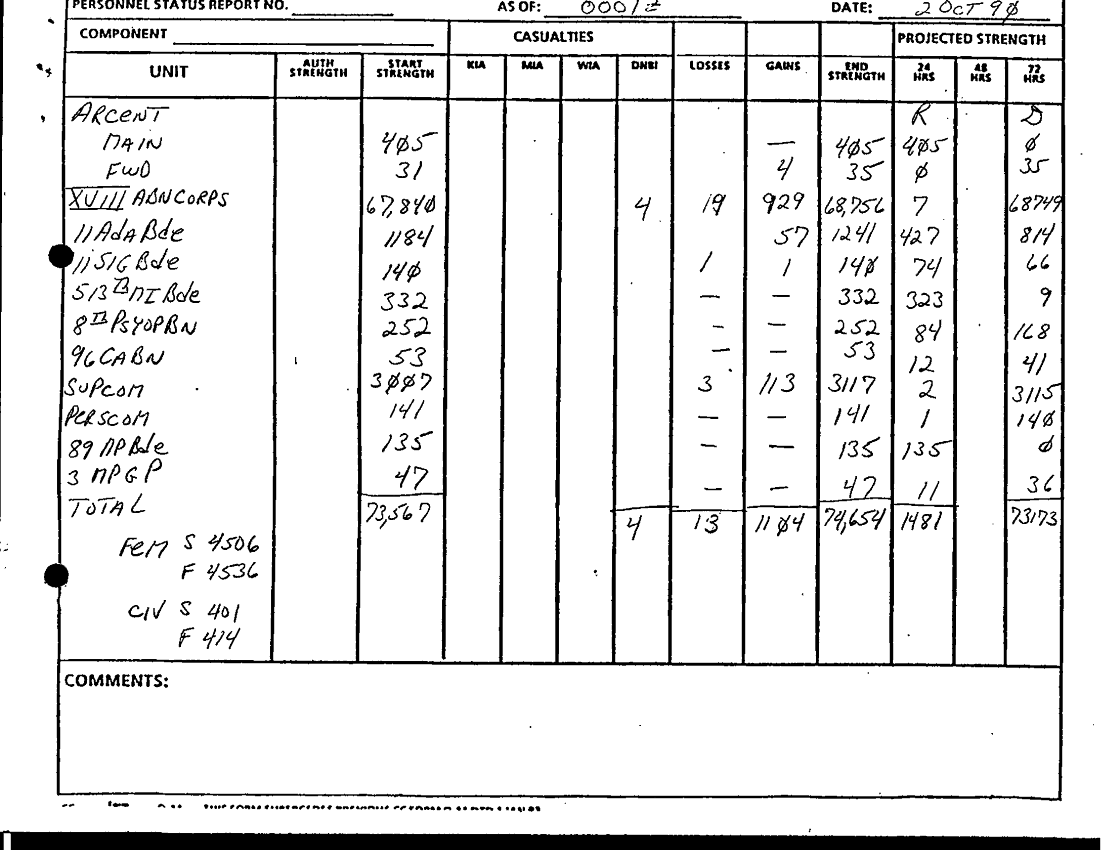 PERSONNEL STATUS REPORT NO. AS OF: 0001Z DATE: 2 OCT 9Ø
COMPONENT CASUALTIES PROJECTED STRENGTH
UNIT AUTH STRENGTH START STRENGTH KIA MIA WIA DNBI LOSSES GAINS END STRENGTH 24 HRS 48 HRS 72 HRS
ARCENT R D
MAIN 4Ø5 — 4Ø5 4Ø5 Ø
FWD 31 4 35 Ø 35
XVIII ABN CORPS 67,84Ø 4 19 929 68,756 7 68749
11 ADA Bde 1184 57 1241 427 814
11 SIG Bde 14Ø 1 1 14Ø 74 66
513 MI Bde 332 — — 332 323 9
8 PSYOP BN 252 - — 252 84 168
96 CA BN 53 — — 53 12 41
SUPCOM 3ØØ7 3 113 3117 2 3115
PERSCOM 141 — — 141 1 14Ø
89 MP Bde 135 — — 135 135 Ø
3 MP GP 47 — — 47 11 36
TOTAL 73,567 4 13 11Ø4 74,654 1481 73173
FEM S 4506
F 4536
CIV S 401
F 414
COMMENTS: